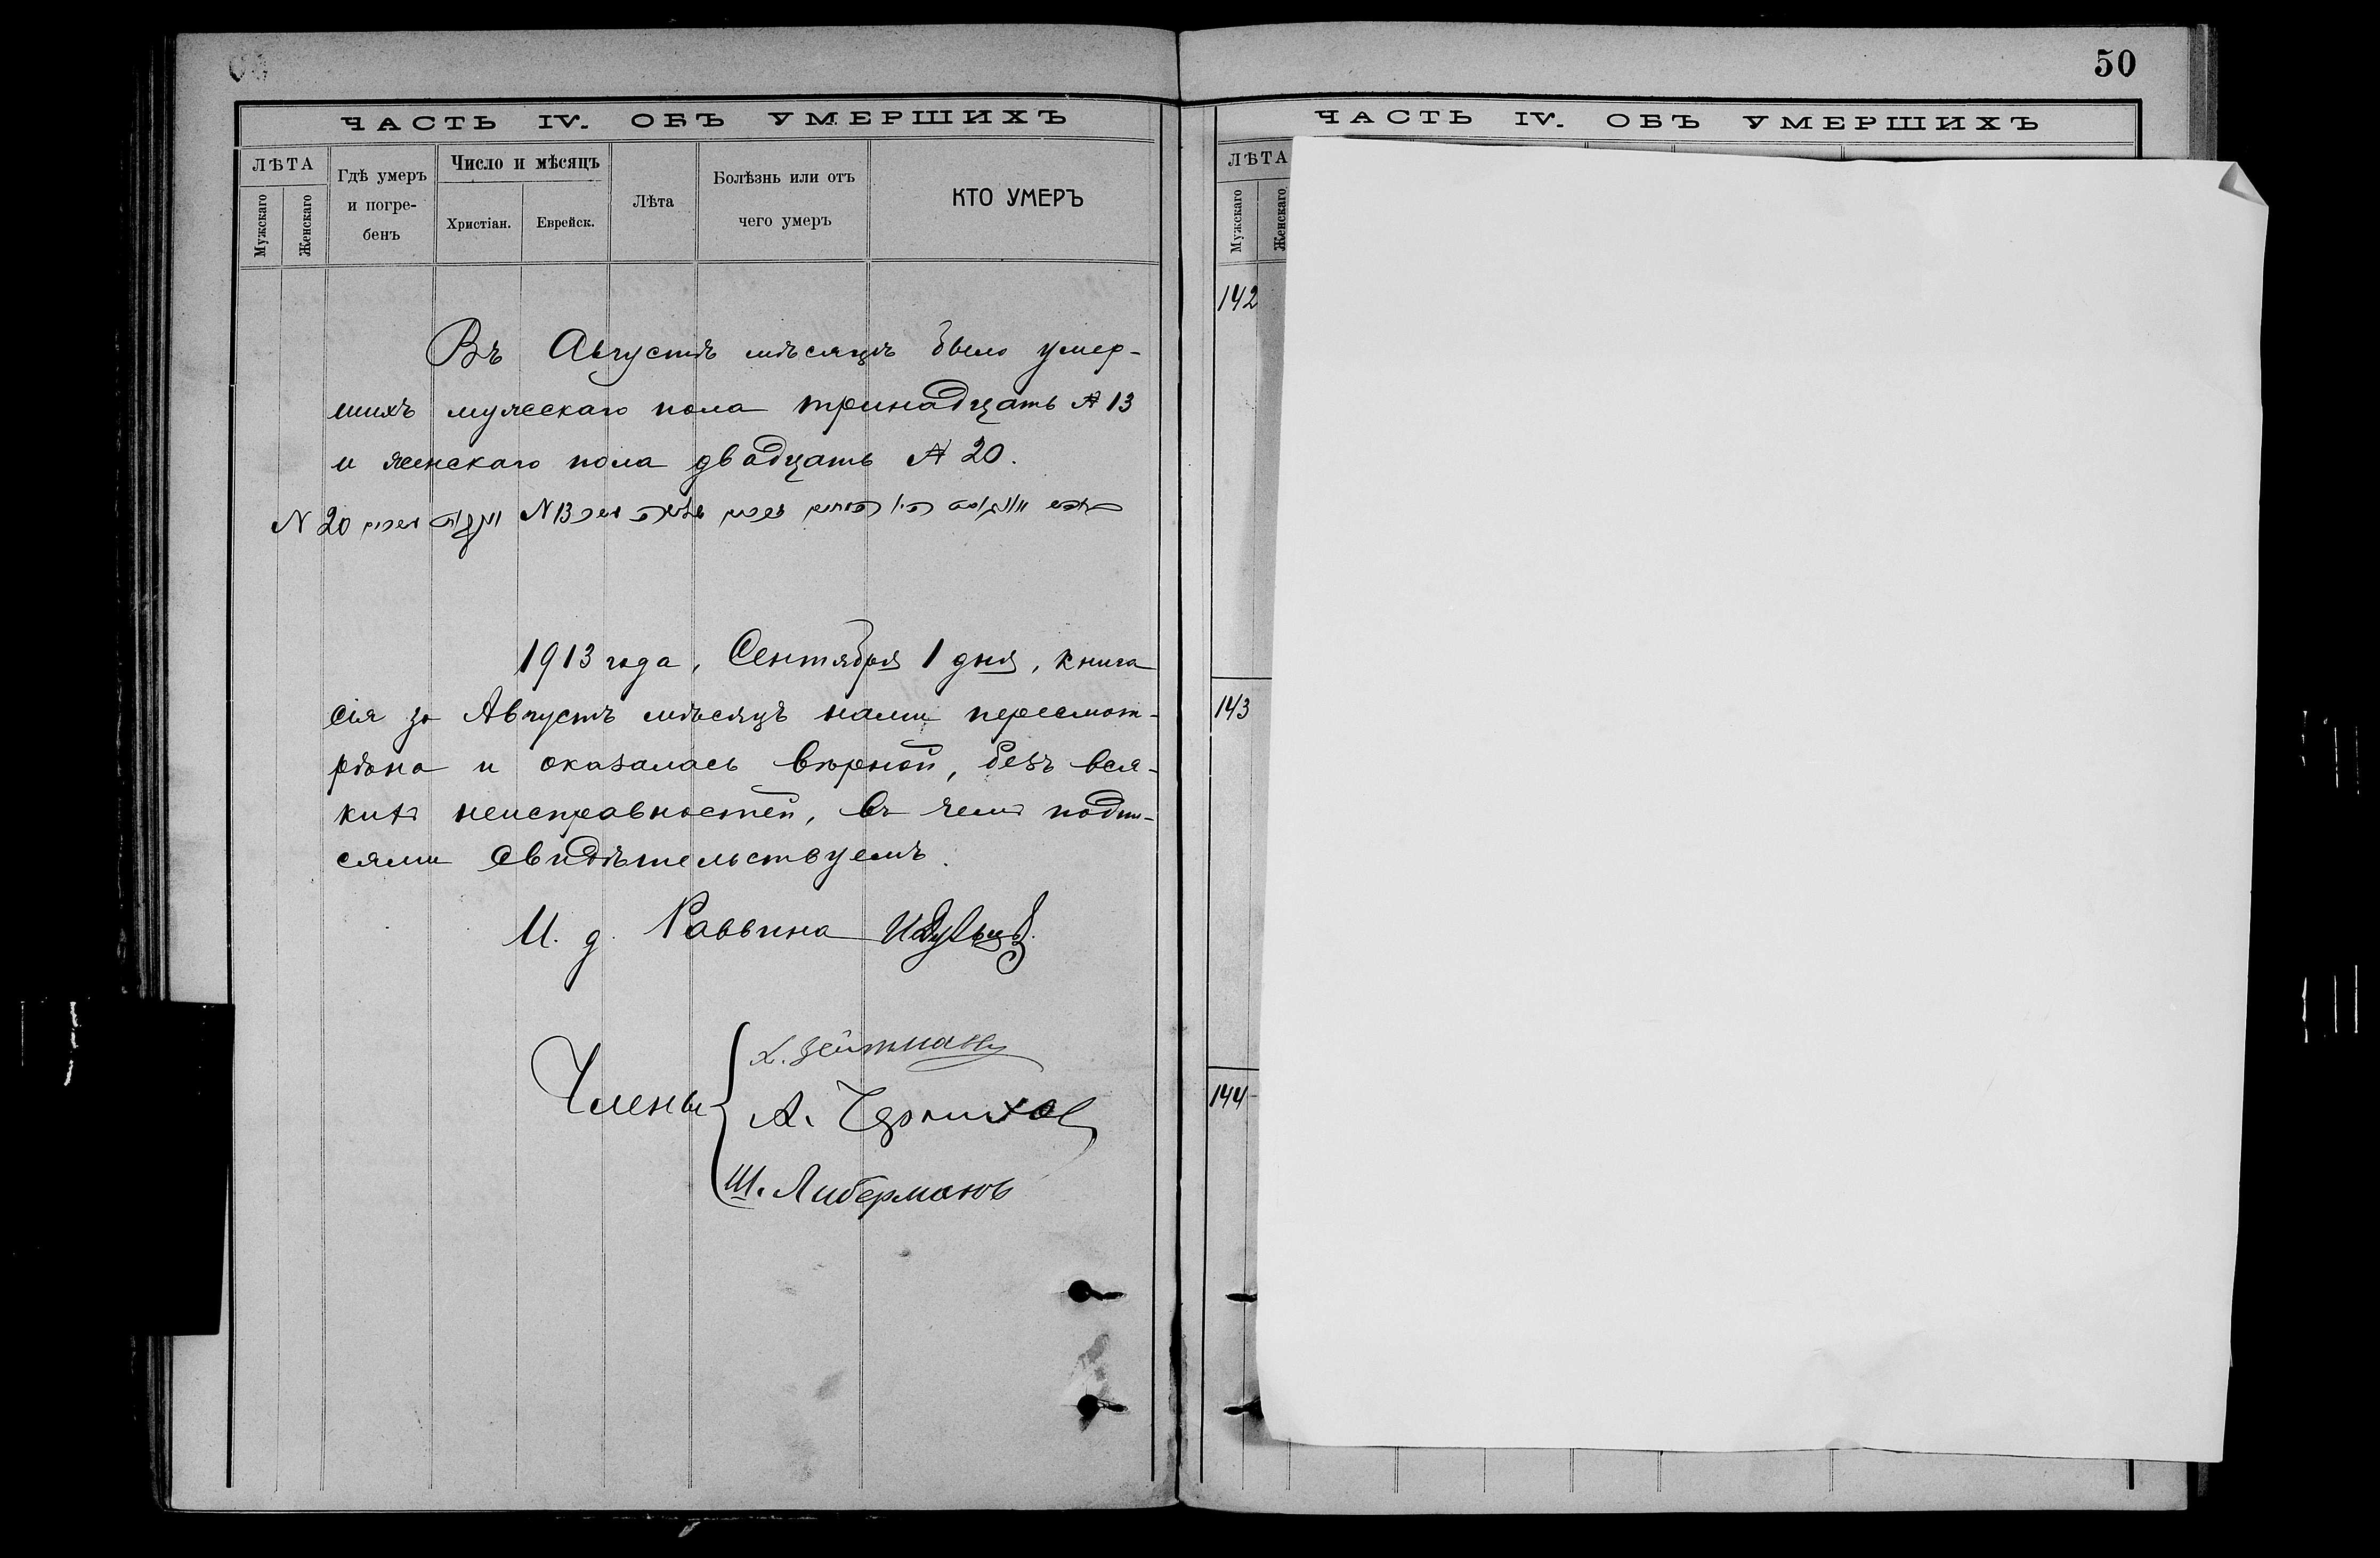 ЧАСТЬ IV. ОБЪ УМЕРШИХЪ
ЛѢТА
Мужскаго
Женскаго
Гдѣ умеръ
и погре-
бенъ
Число и мѣсяцъ
Христіан.
Еврейск.
Лѣта
Болѣзнь или отъ
чего умеръ
КТО УМЕРЪ
Въ Августѣ мѣсяцѣ было умер-
шихъ мужескаго пола тринадцать № 13
и женскаго пола двадцать № 20.
N 13
N 20
1913 года, Сентября 1 дня, книга
сія за Августъ мѣсяцъ нами пересмот-
рѣна и оказалась вѣрной, безъ вся-
кихъ неисправностей, въ чемъ подпи-
сями свидѣтельствуемъ.
И. д. Раввина
Члены
Х. Зейтманъ
А.
Ш. Либерманъ
50
ЧАСТЬ IV. ОБЪ УМЕРШИХЪ
ЛѢТА
Мужскаго
Женскаго
142
143
144